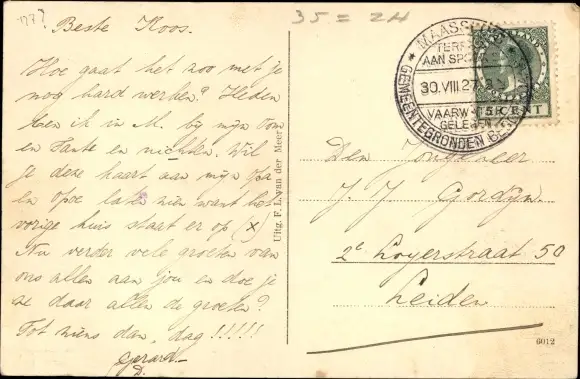 1727
35 = 2H
Beste Koos.
Hoe gaat het zoo met je
nog hard werken? Heden
ben ik in M. by mijn Oom
en Tante en nichten. Wil
je deze kaart aan mijn Opa
en Opoe laten zien want het
vorige huis staat er op (x)
Nu verder vele groeten van
ons allen aan jou en doe je
ze daar allen de groeten?
Tot ziens dan, dag !!!!!
Gerard
D.
Uitg. F. L. van der Meer
MAASSLUIS
AAN SPOOR
30.VIII.27
VAARW
GELEGEN
GEMEENTEGRONDEN
5 CENT
Den Jongeheer
J. J. Gordijn.
2e Loyerstraat 50
Leiden
6012